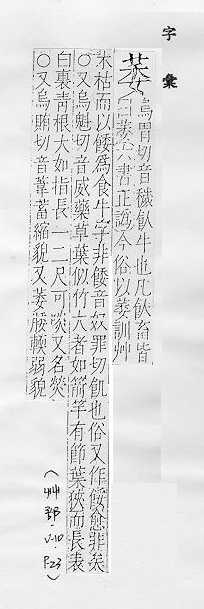 字彙
萎
烏胃切音穢飤牛也凡飤畜皆
曰萎六書正譌今俗以萎訓艸
木枯而以餧為食牛字非餧音奴罪切飢也俗又作餧愈非矣
○又烏魁切音威藥草葉似竹大者如箭竿有節葉狹而長表
白裏青根大如指長一二尺可啖又名熒
○又烏賄切音葦蓄縮貌又萎腇輭弱貌
(艸部 U-10 P-23)